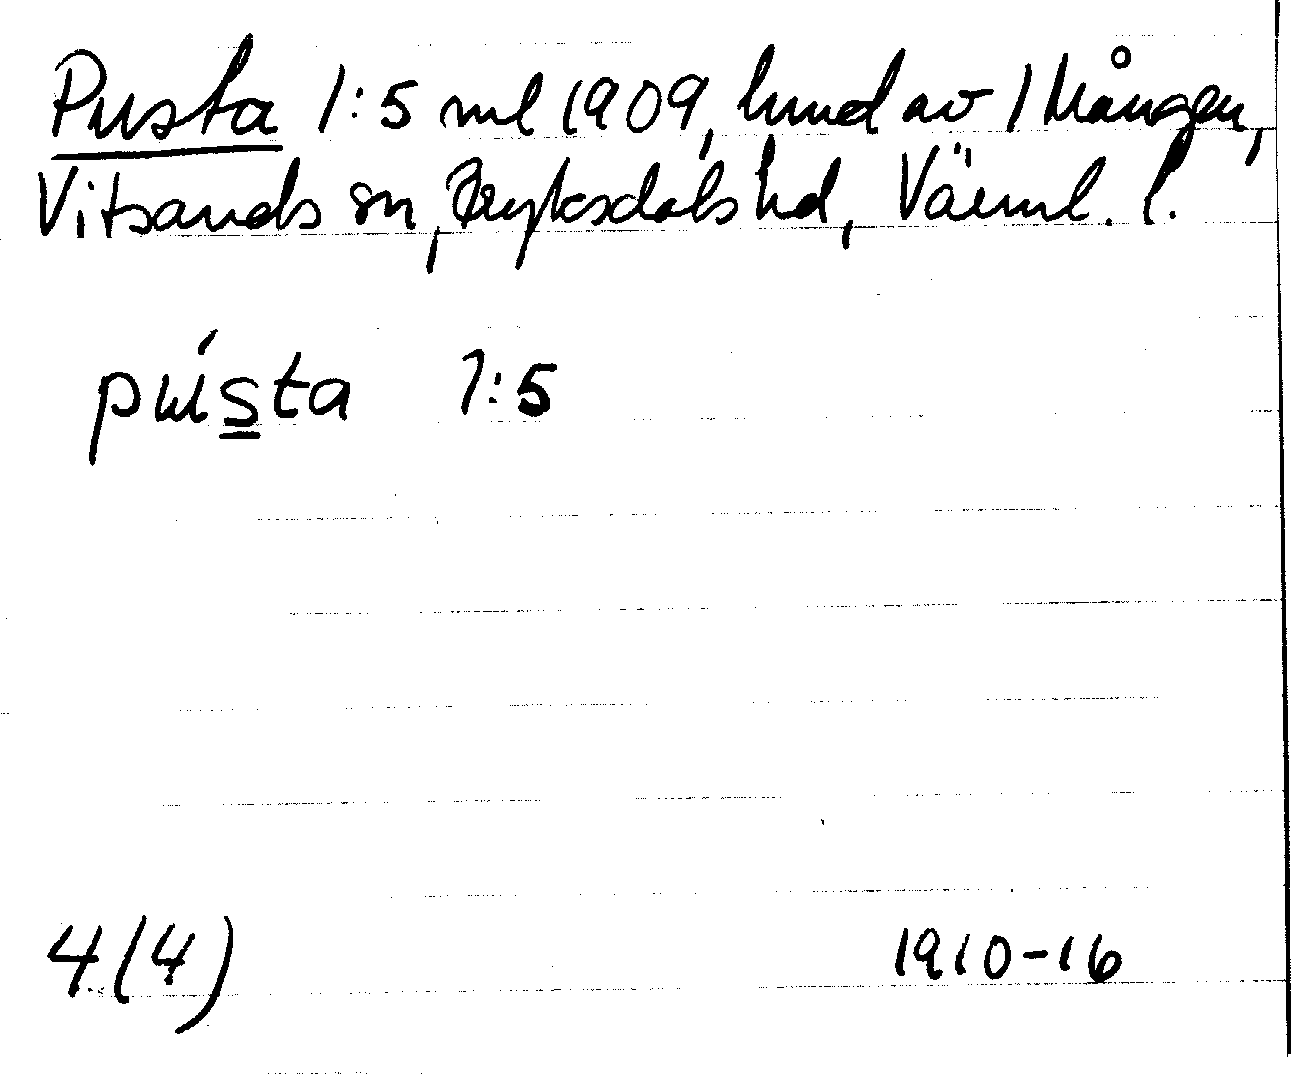 Pusta 1:5 ml 1909, hmd av 1 Mången,
Vitsands sn, Fryksdals hd, Värml. l.
pústa 1:5
4(4)
1910-16